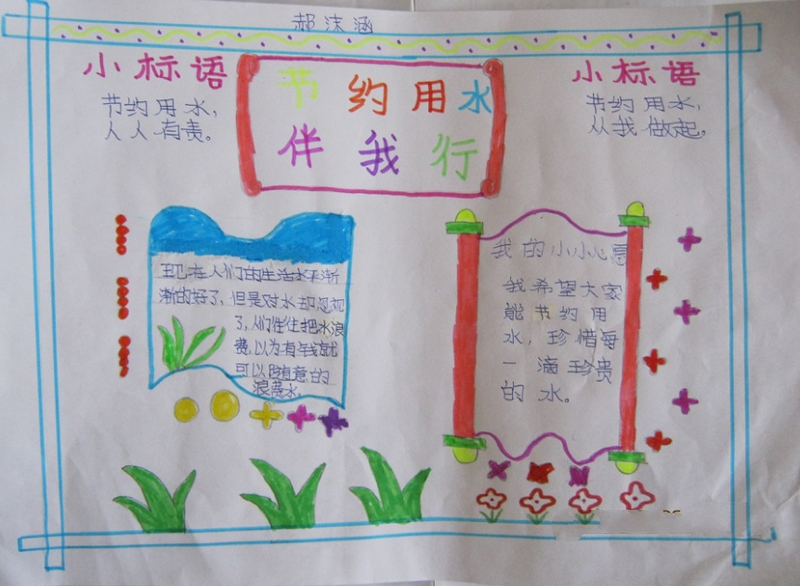 郝沫涵
小标语
节约用水，
人人有责。
节约用水
伴我行
小标语
节约用水，
从我做起。
现在人们的生活水平渐
渐的好了，但是对水却忽视
了，人们往往把水浪
费，以为有钱就
可以随意的
浪费水。
我的小小心愿
我希望大家
能节约用
水，珍惜每
一滴珍贵
的水。